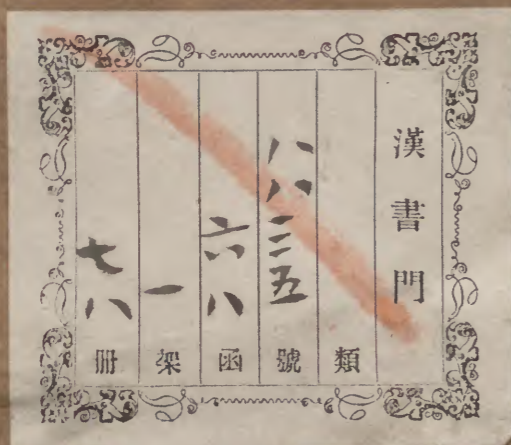 漢書門
類
八八三五號
六八函
一架
七八冊